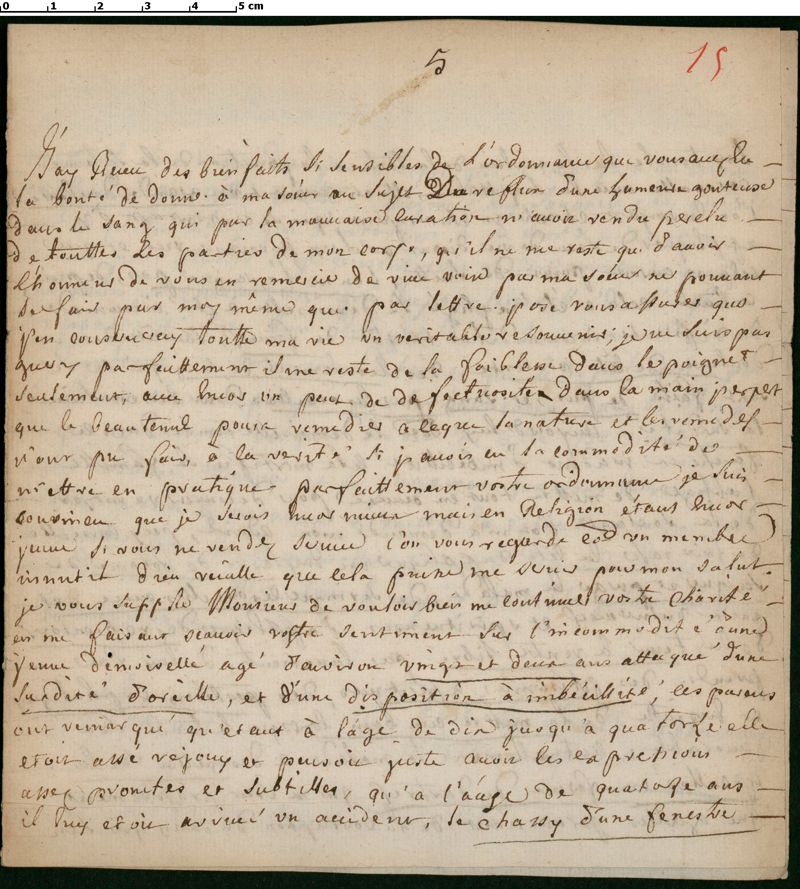 0 1 2 3 4 5 cm
5
15
J'ay Receu des bienfaits si sensibles de L'ordonnance que vous avez Eu
la bonté de donner à ma sœur au sujet Du reflux d'une humeur gouteuse
dans le sang qui par la mauvaise curation m'avoir rendu perclu
de touttes Les parties de mon corps, qu'il ne me reste qu'à avoir
L'honneur de vous en remercie de vive voix par ma sœur ne pouvant
Le fair par moy même que par lettre. j'ose vous assurer que
j'en conserveray toutte ma vie un veritable resouvenir; je ne suis pas
guery parfaittement il me reste de la foiblesse dans le poignet
seulement, avec Encor un peut de defectuosité dans la main j'espert
que le beau temp poura remedier a ceque la nature et les remedes
n'ont pu fair, à la verité si j'avois eu la commodité de
mettre en pratique parfaittement vostre ordonnance je suis
convincu que je serois Encor mieux mais en Religion étant Encor
jeune si vous ne rendez service l'on vous regarde co͞e un membre
innutil dieu veuille que cela puisse me servir pour mon salut.
je vous supplie Monsieur de vouloir bien me continuer vostre charité
en me faisant scavoir vostre sentiment sur l'incommodité d'une
jeune demoiselle agé d'aviron vingt et deux ans attaqué d'une
surdité d'oreille, et d'une disposition à imbécillité, les parens
ont remarqué qu'etant à l'age de dix jusqu'a quatorze elle
etoit assé rejouy et pensoit juste avoir les expressions
assez promtes et subtilles, qu'a l'áage de quatorze ans
il luy etoit arrivé un accident, le chassy d'une fenestre